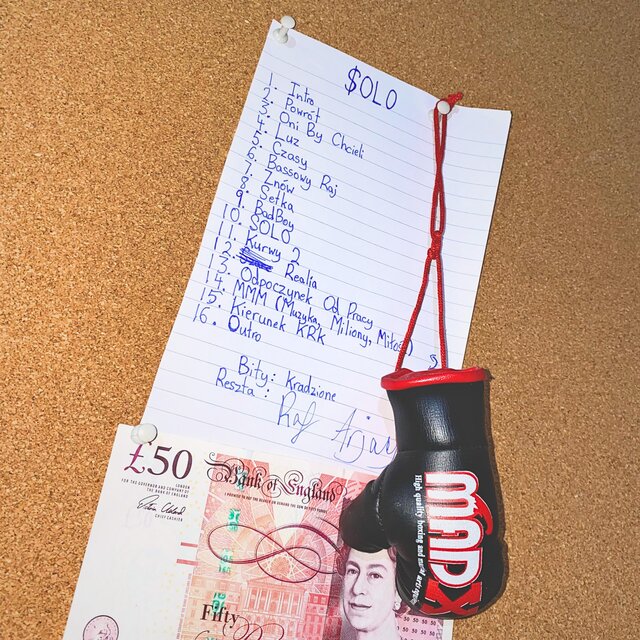 $OLO
1. Intro
2. Powrót
3. Oni By Chcieli
4. Luz
5. Czasy
6. Bassowy Raj
7. Znów
8. Setka
9. BadBoy
10. SOLO
11. Kurwy 2
12. Realia
13. Odpoczynek Od Pracy
14. MMM (Muzyka, Miliony, Miłość)
15. Kierunek KRK
16. Outro
Bity: Kradzione
Reszta:
£50
FOR THE GOVERNOR AND COMPANY OF
THE BANK OF ENGLAND
CHIEF CASHIER
Bank of England
I PROMISE TO PAY THE BEARER ON DEMAND THE SUM OF FIFTY
Fifty
MADX
High quality boxing and